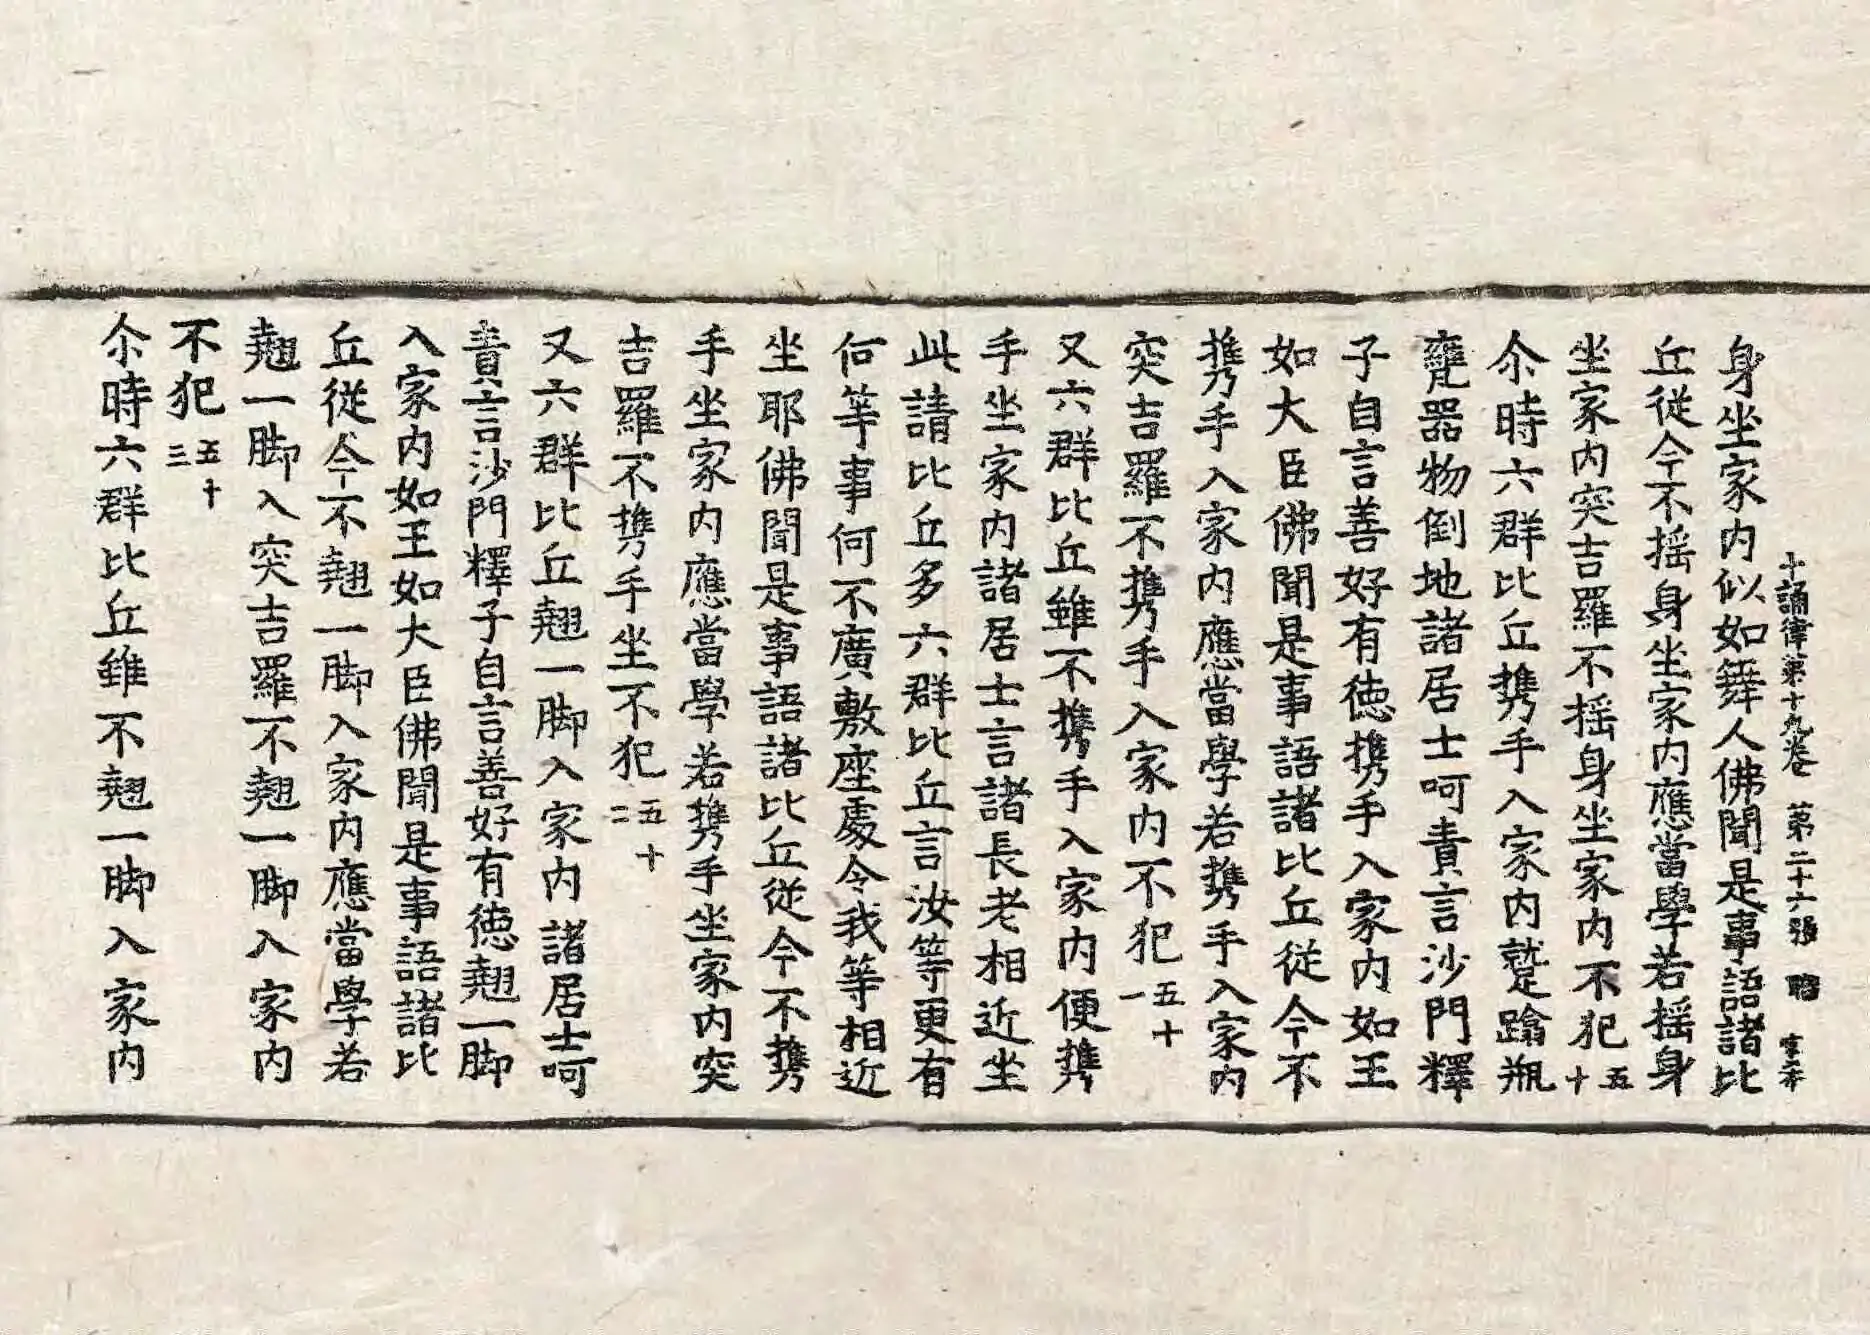 十誦律第十九卷 第二十六張 宇本
身坐家内似如舞人佛聞是事語諸比
丘從今不摇身坐家内應當學若摇身
坐家内突吉羅不摇身坐家内不犯五十
尒時六群比丘携手入家内蹴蹹瓶
甕器物倒地諸居士呵責言沙門釋
子自言善好有德携手入家内如王
如大臣佛聞是事語諸比丘從今不
携手入家内應當學若携手入家内
突吉羅不携手入家内不犯五十一
又六群比丘雖不携手入家内便携
手坐家内諸居士言諸長老相近坐
此請比丘多六群比丘言汝等更有
何等事何不廣敷座處令我等相近
坐耶佛聞是事語諸比丘從今不携
手坐家内應當學若携手坐家内突
吉羅不携手坐不犯五十二
又六群比丘翹一脚入家内諸居士呵
責言沙門釋子自言善好有德翹一脚
入家内如王如大臣佛聞是事語諸比
丘從今不翹一脚入家内應當學若
翹一脚入突吉羅不翹一脚入家内
不犯五十三
尒時六群比丘雖不翹一脚入家内